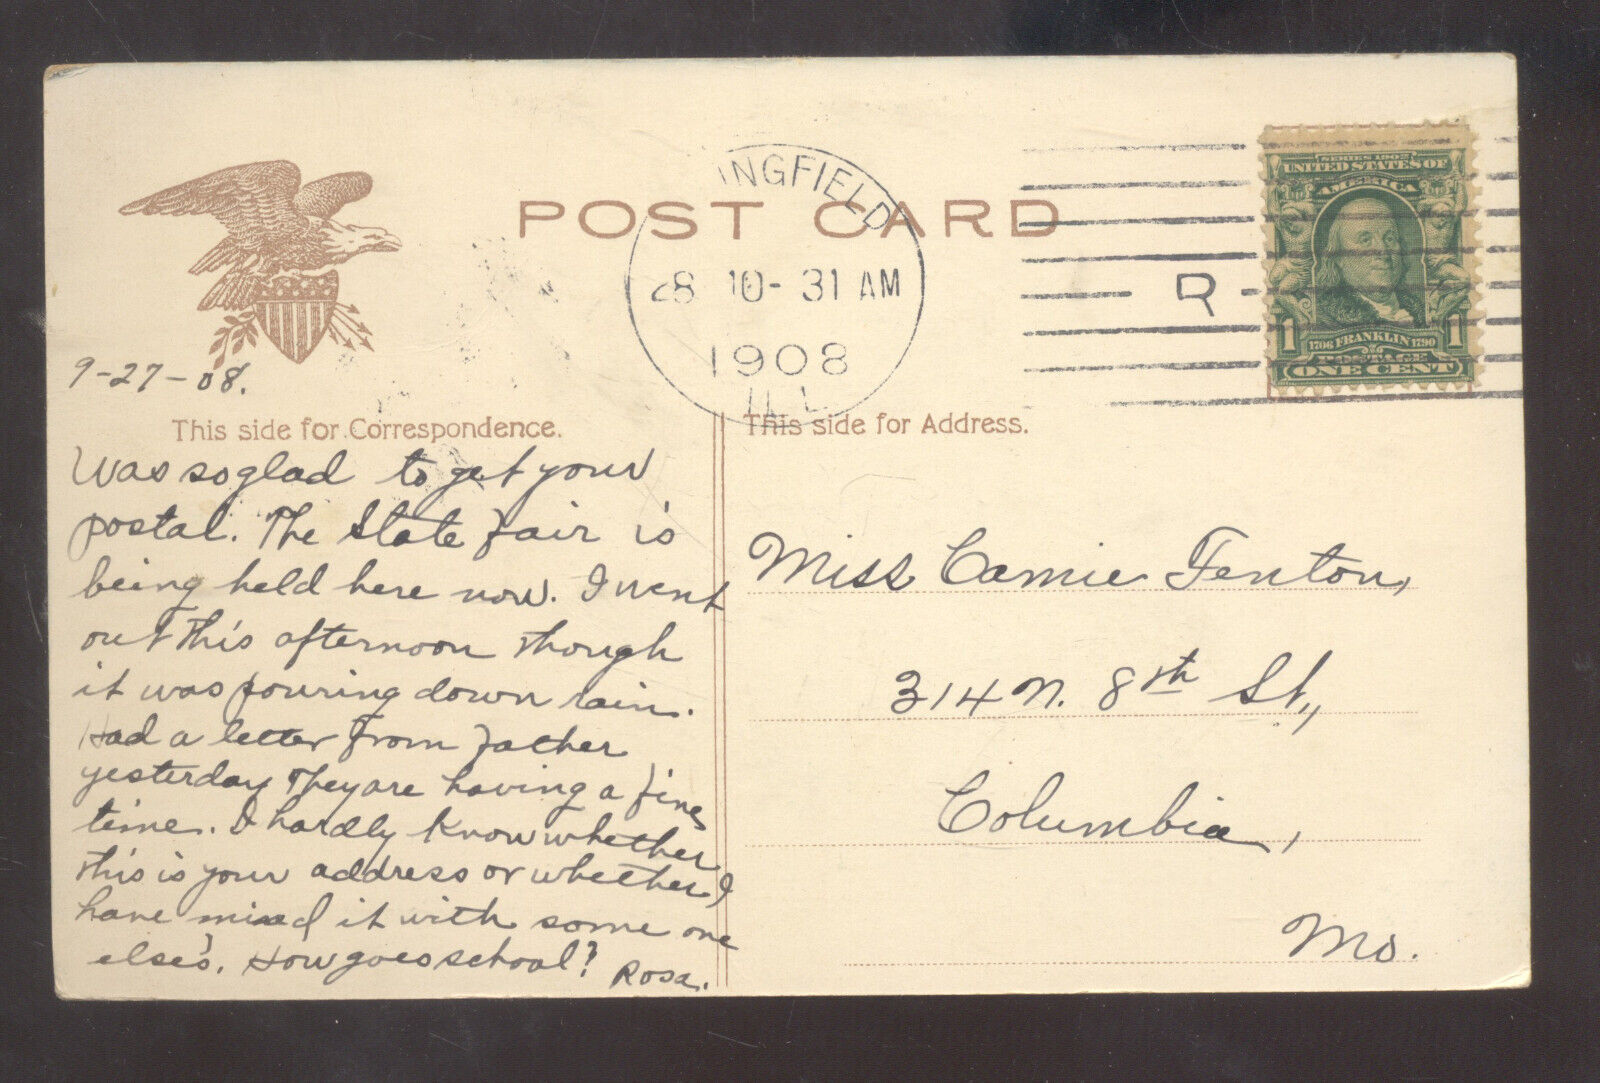 INGFIELD
POST CARD
28 10-31 AM
1908
ILL
R
SERIES 1902
UNITED STATES OF
AMERICA
1 1
1706 FRANKLIN 1790
POSTAGE
ONE CENT
9-27-08.
This side for Correspondence.
Was so glad to get your
postal. The State Fair is
being held here now. I went
out this afternoon though
it was pouring down rain.
Had a letter from father
yesterday They are having a fine
time. I hardly know whether
this is your address or whether I
have mixed it with some one
else's. How goes school? Rosa.
This side for Address.
Miss Camie Fenton,
314 N. 8th St.,
Columbia,
Mo.